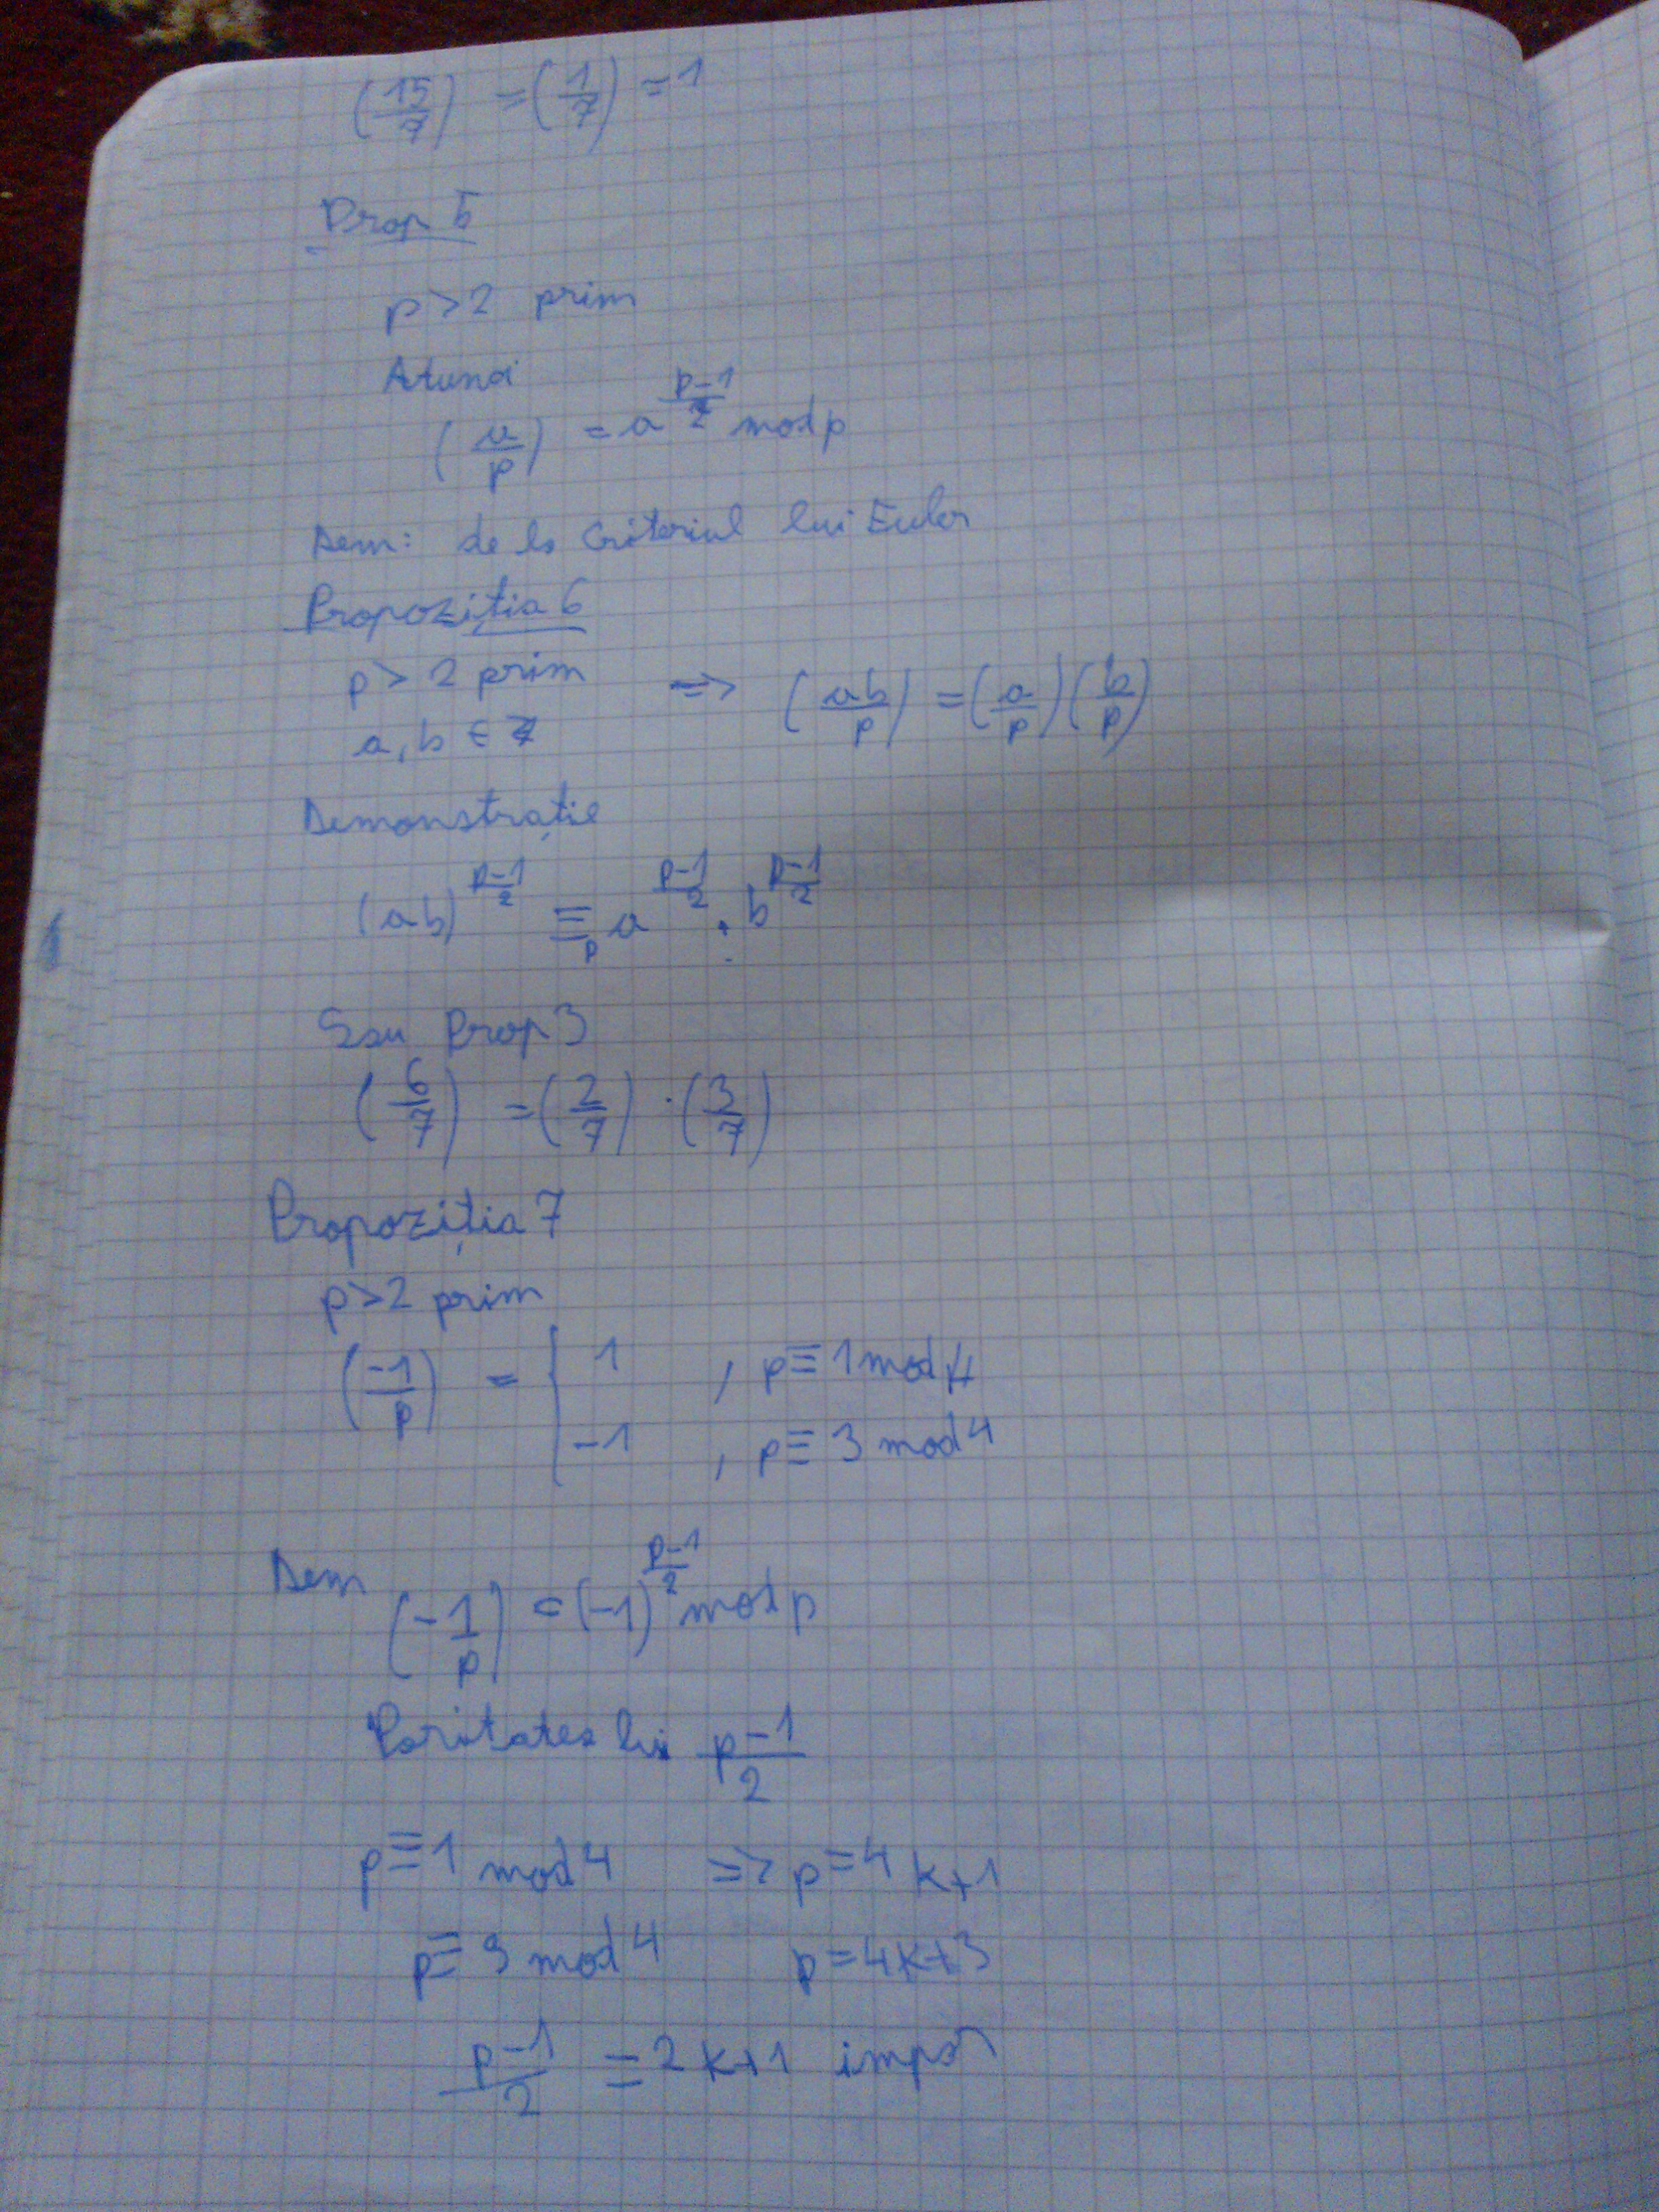 (15/7) = (1/7) = 1
Prop 5
p > 2 prim
Atunci
(a/p) = a^((p-1)/2) mod p
Dem: de la Criteriul lui Euler
Propoziția 6
p > 2 prim ⇒ (ab/p) = (a/p)(b/p)
a, b ∈ ℤ
Demonstrație
(ab)^((p-1)/2) ≡_p a^((p-1)/2) · b^((p-1)/2)
Sau Prop 3
(6/7) = (2/7) · (3/7)
Propoziția 7
p > 2 prim
(-1/p) = { 1 , p ≡ 1 mod 4
-1 , p ≡ 3 mod 4
Dem
(-1/p) = (-1)^((p-1)/2) mod p
Paritatea lui (p-1)/2
p ≡ 1 mod 4 ⇒ p = 4k+1
p ≡ 3 mod 4 p = 4k+3
(p-1)/2 = 2k+1 impar